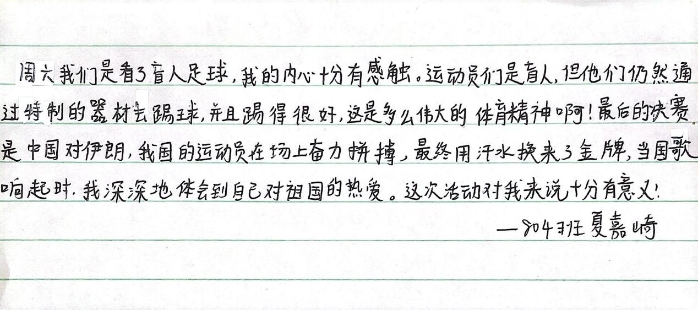 周六我们是看了盲人足球，我的内心十分有感触。运动员们是盲人，但他们仍然通
过特制的器材去踢球，并且踢得很好，这是多么伟大的体育精神啊！最后的决赛
是中国对伊朗，我国的运动员在场上奋力拼搏，最终用汗水换来了金牌，当国歌
响起时，我深深地体会到自己对祖国的热爱。这次活动对我来说十分有意义！
—804班夏嘉崎